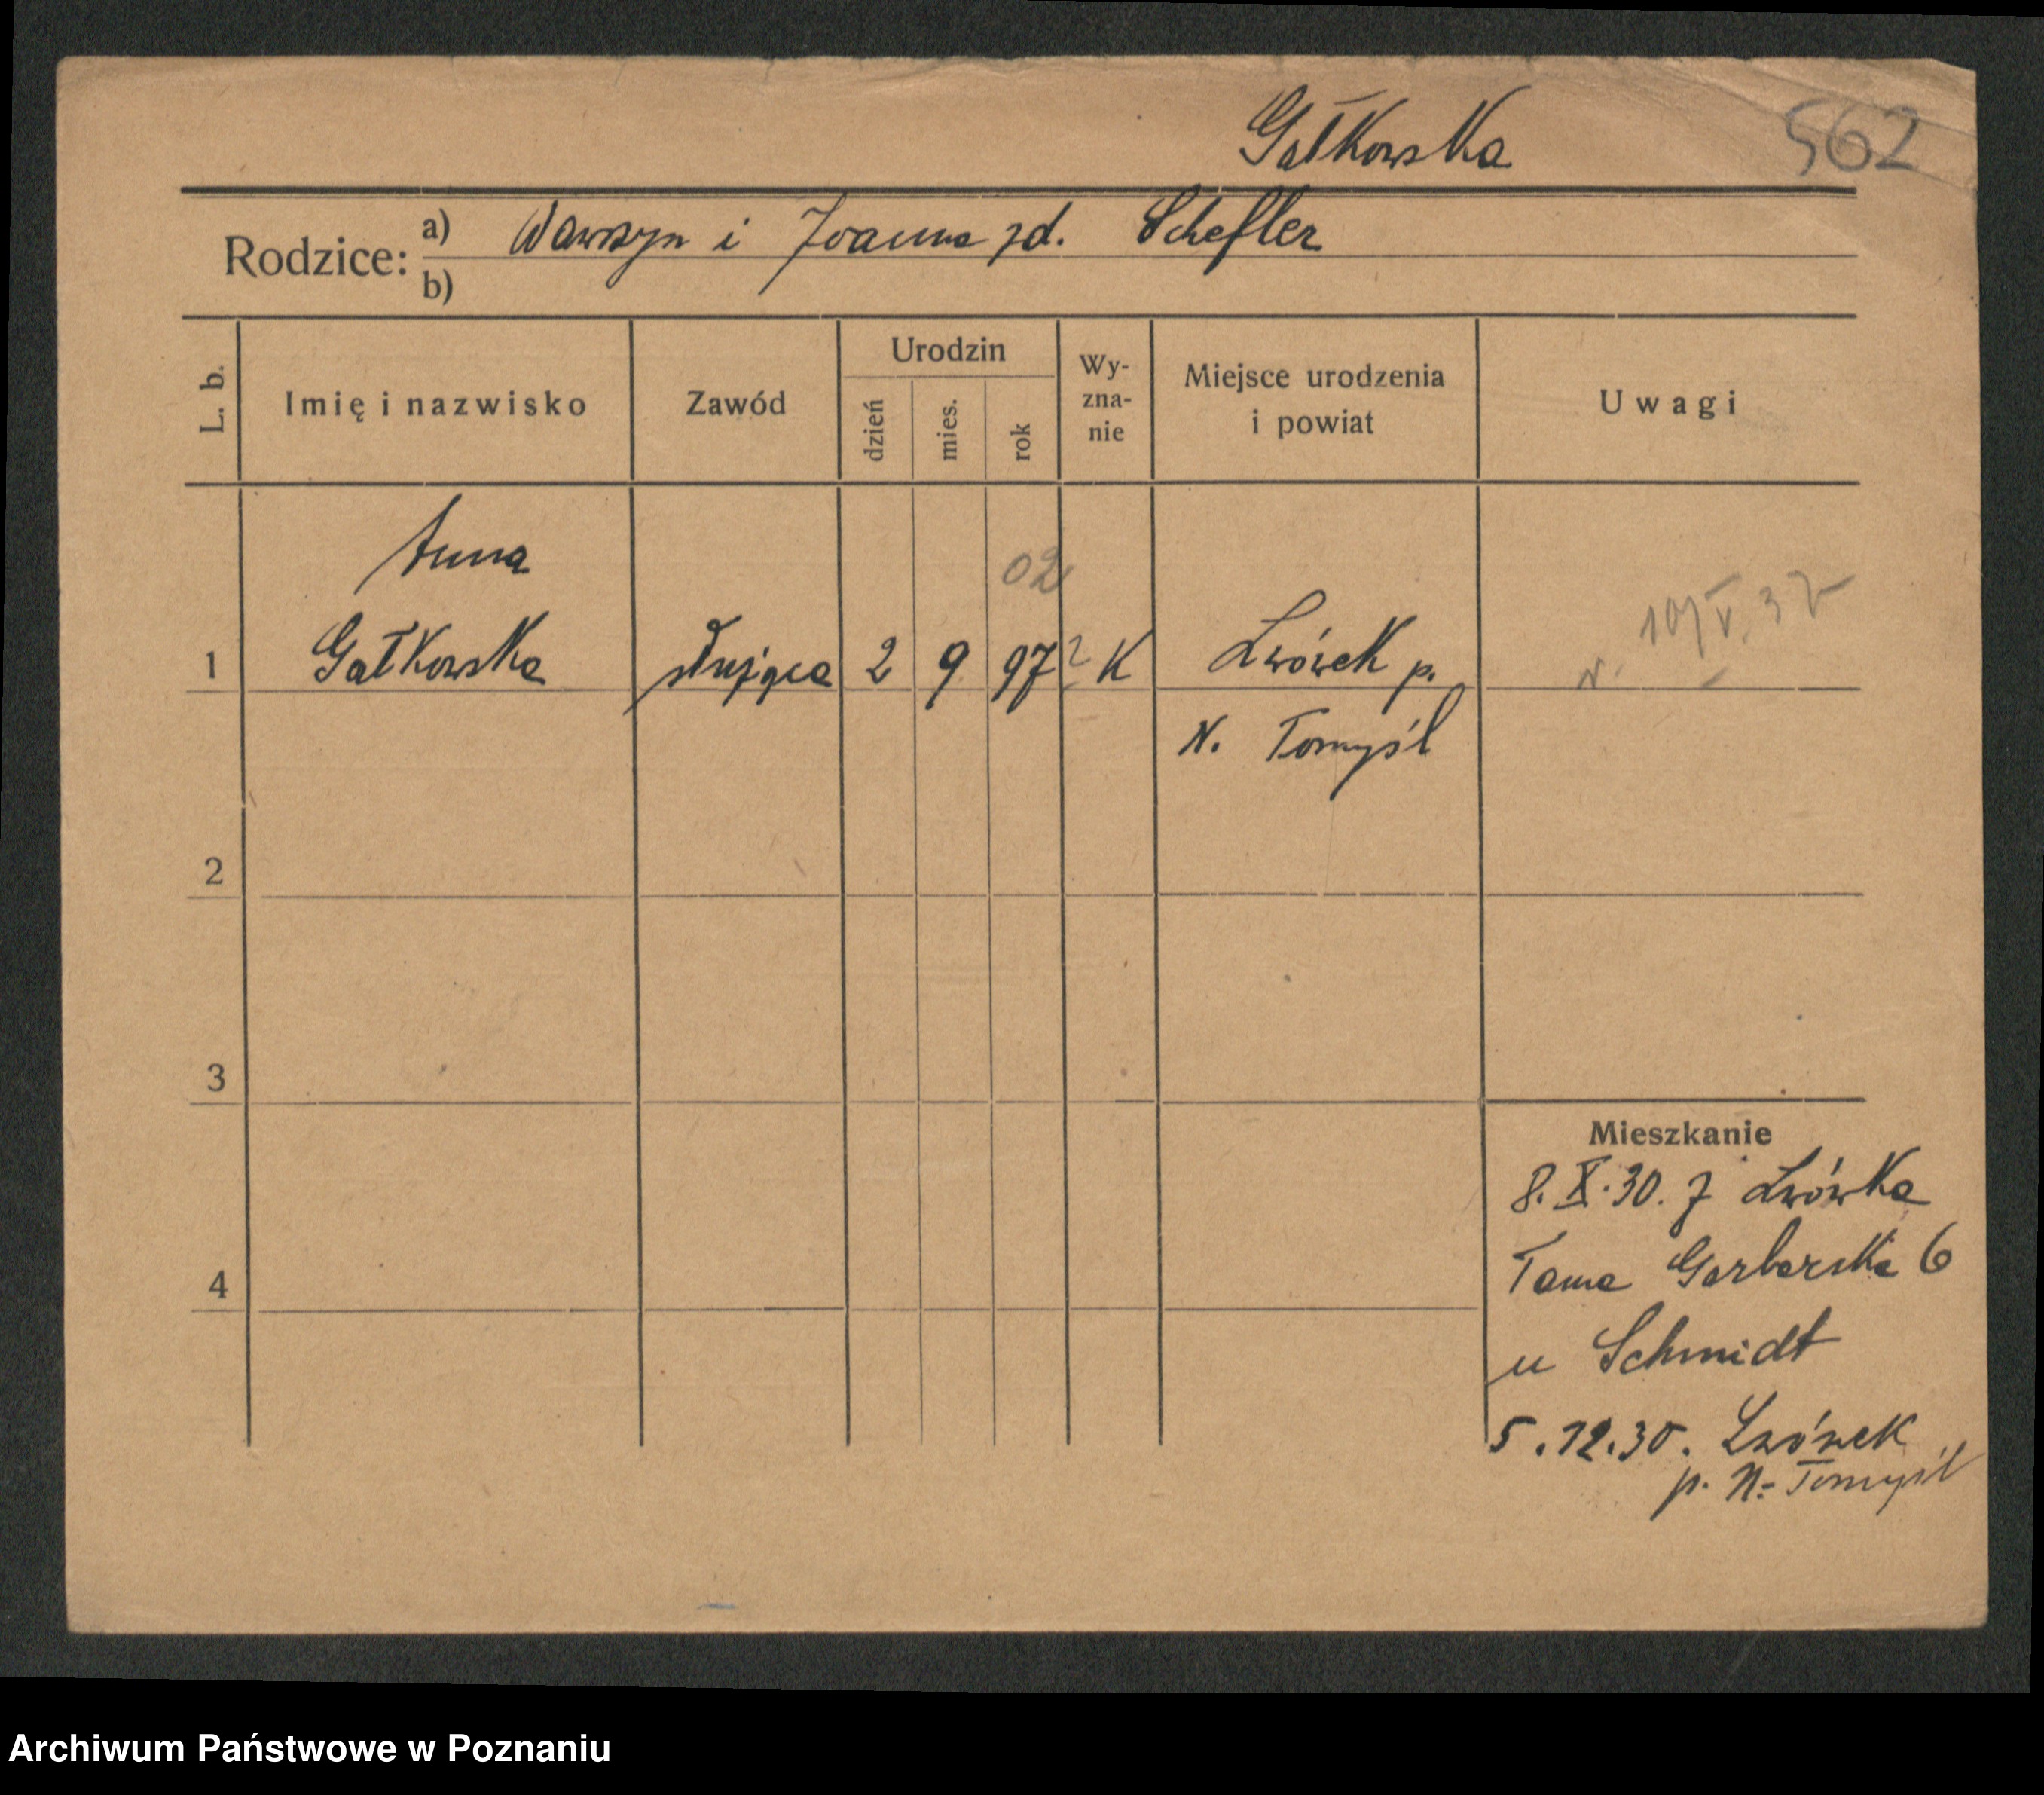 Gałkowska 562
Rodzice: a) Wawrzyn i Joanna zd. Schefler
b)
L. b. Imię i nazwisko Zawód Urodzin dzień mies. rok Wy-zna-nie Miejsce urodzenia i powiat Uwagi
Anna 02
1 Gałkowska służąca 2 9 97 ? K Lwówek p.
N. Tomyśl
2
3
Mieszkanie
8. X. 30. z Lwówka
4 Tama Garbarska 6
u Schmidt
5.12.30. Lwówek
p. N. Tomyśl
Archiwum Państwowe w Poznaniu